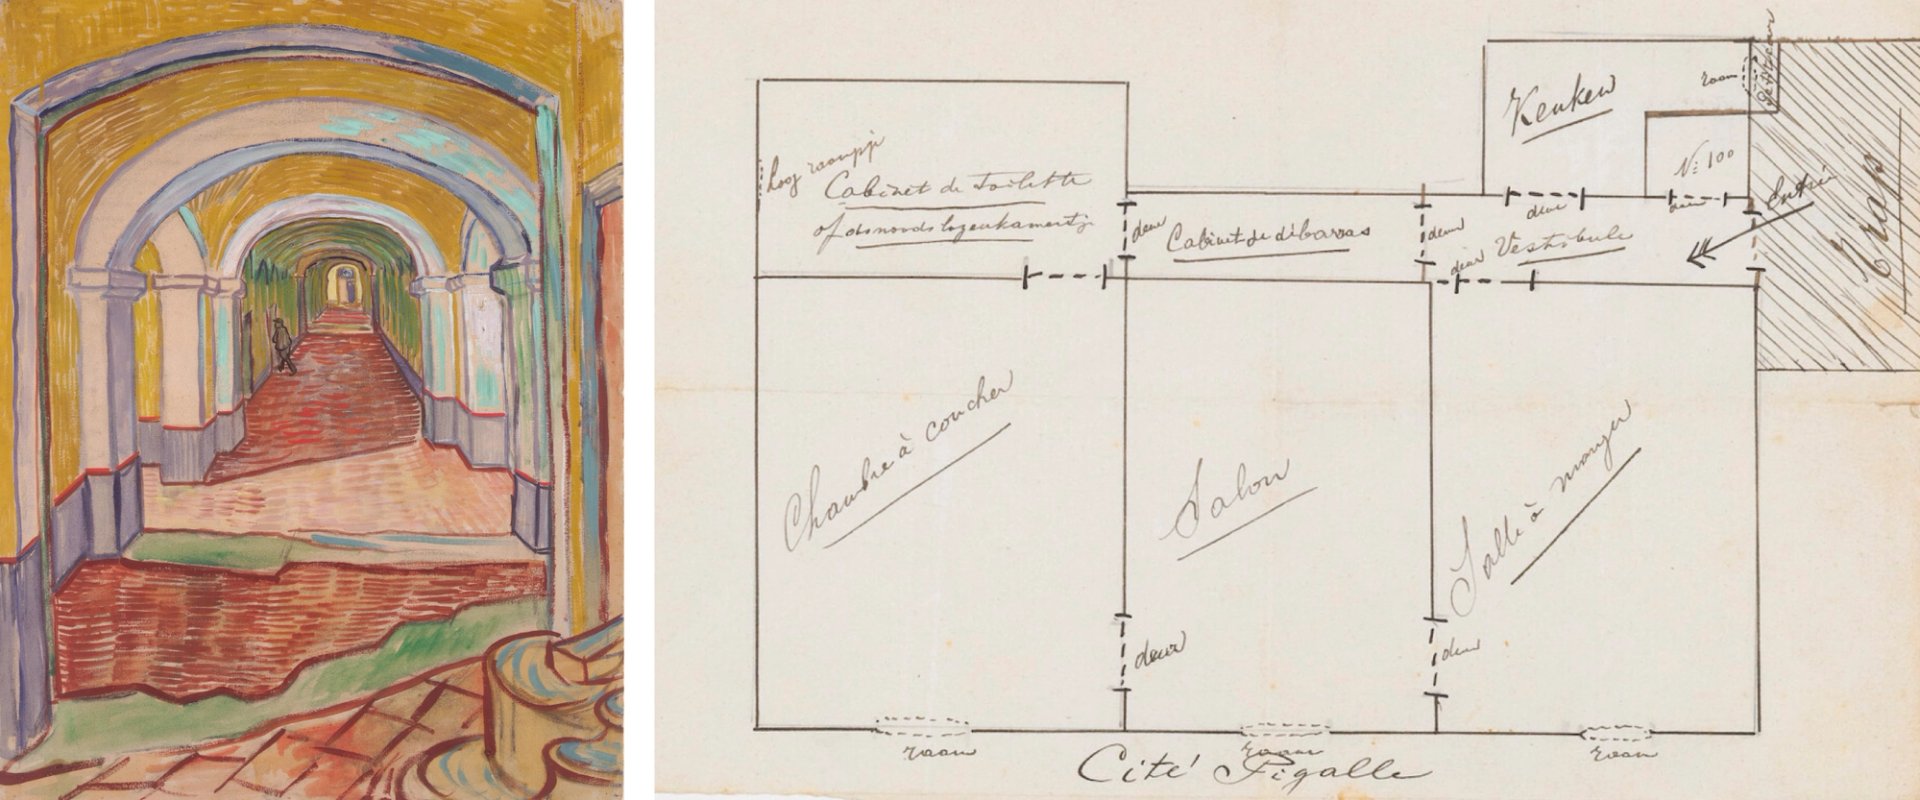 Keuken
raam
Nº 100
hoog raampje
Cabinet de Toilette
of desnoods logeerkamertje
deur
Cabinet de débarras
deur
deur
deur
deur
Vestibule
Entrée
Trap
Chambre à coucher
Salon
Salle à manger
deur
deur
raam
raam
raam
Cité Pigalle